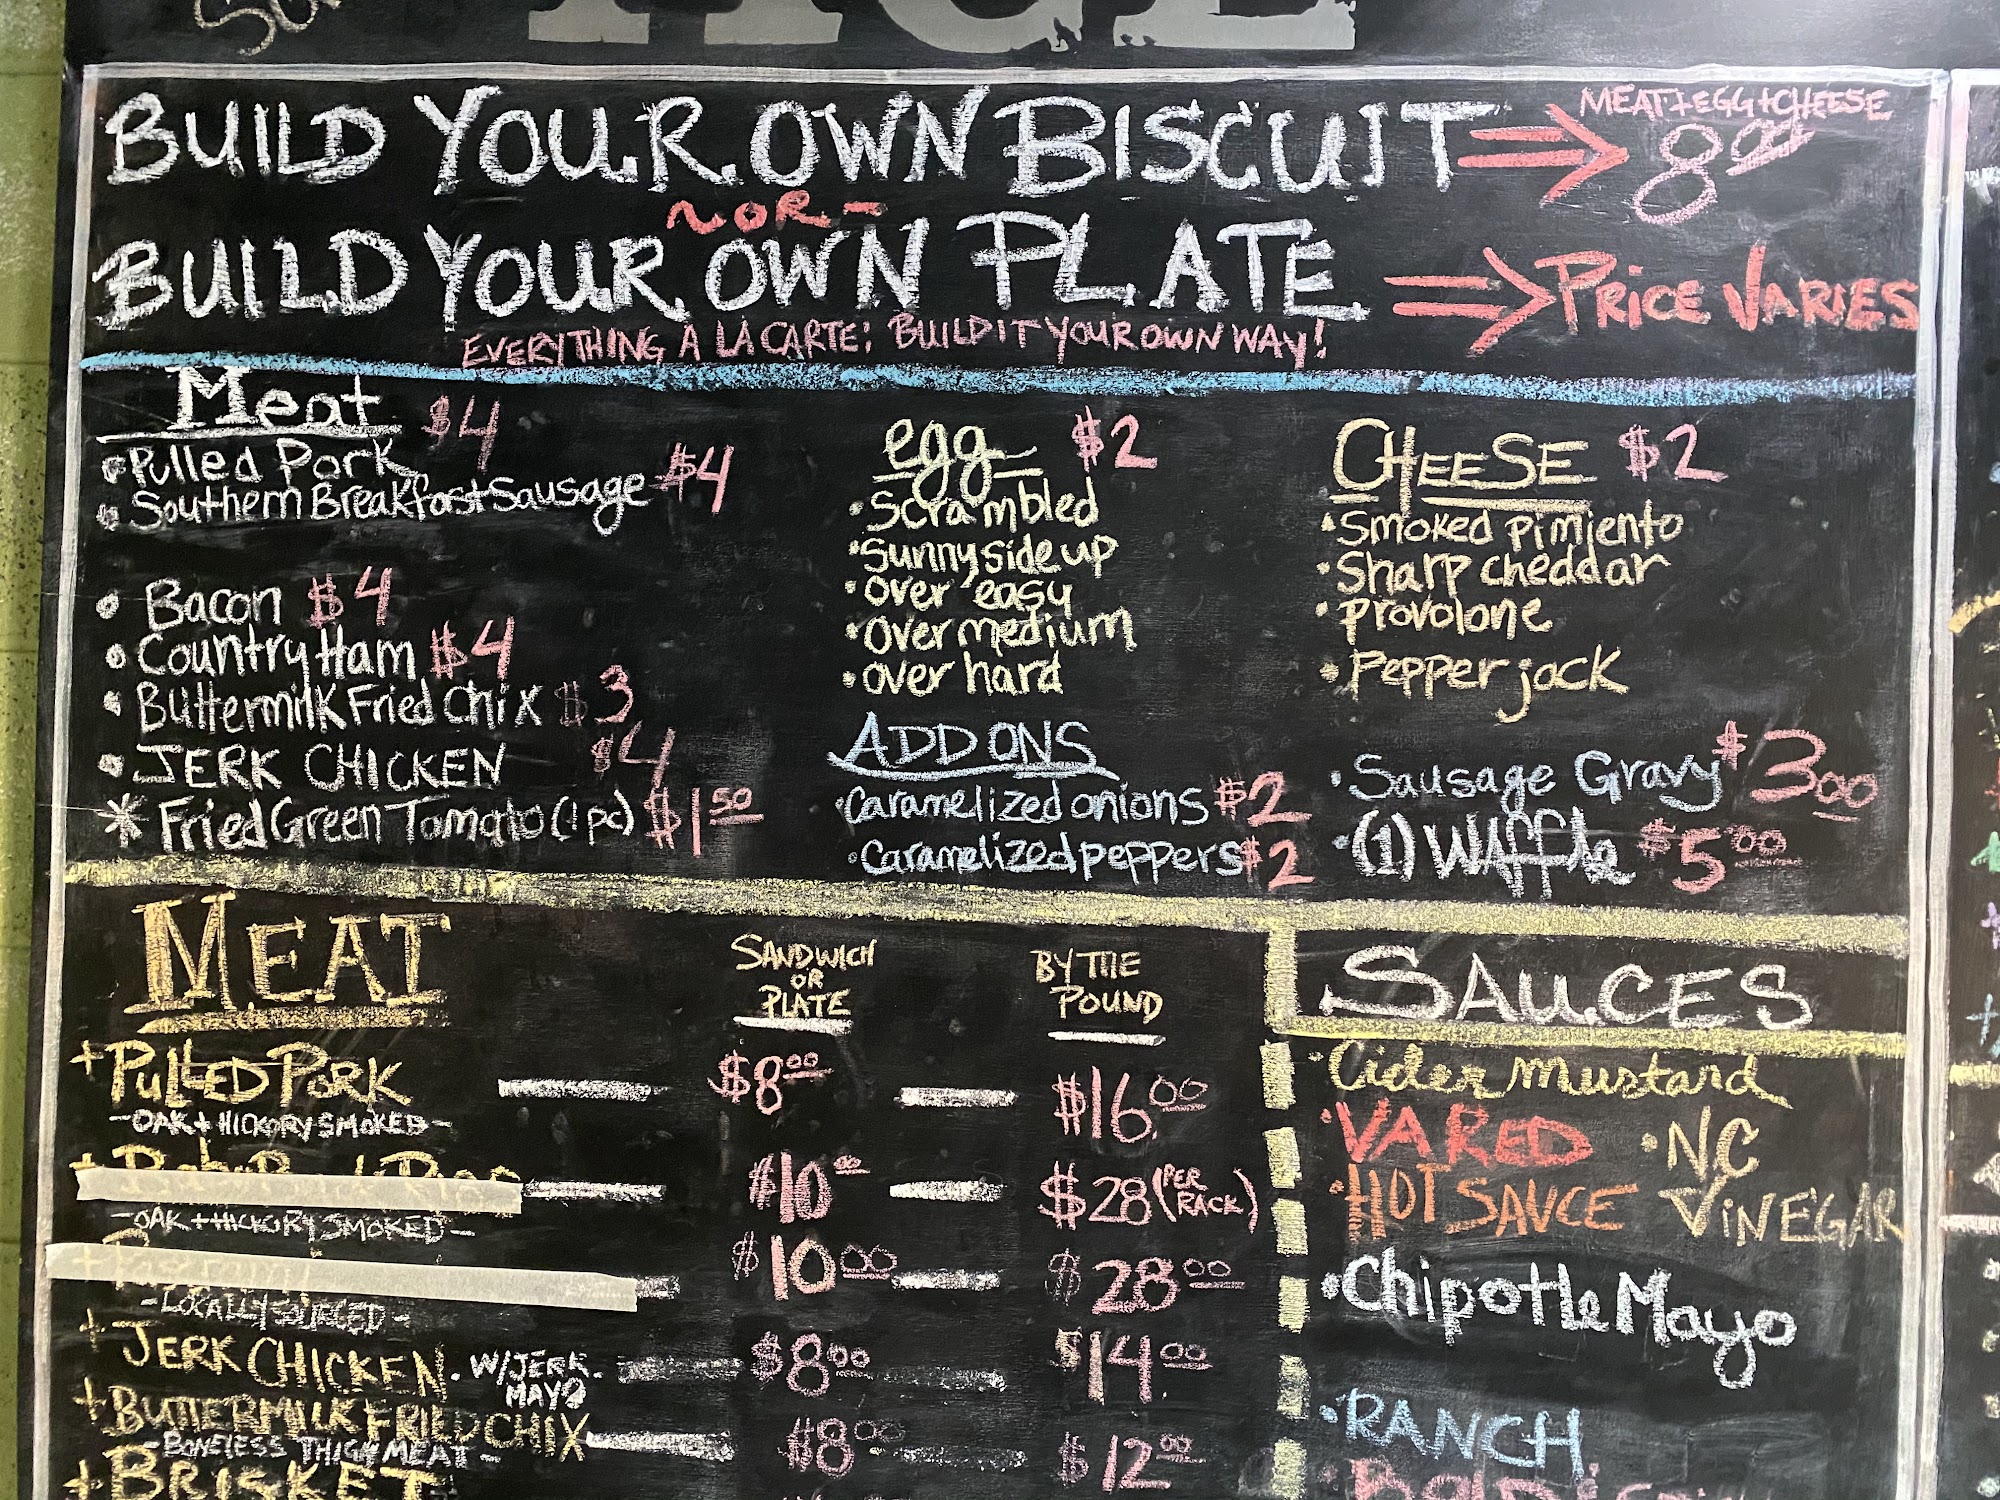 MEAT+EGG+CHEESE
BUILD YOUR OWN BISCUIT 8.00
~OR-
BUILD YOUR OWN PLATE PRICE VARIES
EVERYTHING A LA CARTE: BUILD IT YOUR OWN WAY!
Meat $4
Pulled Pork
Southern Breakfast Sausage $4
Bacon $4
Country Ham $4
Buttermilk Fried Chix $3
JERK CHICKEN $4
* Fried Green Tomato (1pc) $1.50
egg $2
Scrambled
Sunny side up
Over easy
Over medium
over hard
ADD ONS
Caramelized onions $2
Caramelized peppers $2
CHEESE $2
Smoked pimiento
Sharp cheddar
Provolone
Pepper jack
Sausage Gravy $3.00
(1) Waffle $5.00
MEAT
SANDWICH
OR
PLATE
BY THE
POUND
+ PULLED PORK $8.00 $16.00
-OAK + HICKORY SMOKED-
$10.00 $28 (PER RACK)
-OAK + HICKORY SMOKED-
$10.00 $28.00
-LOCALLY SOURCED-
+ JERK CHICKEN. W/JERK. MAYO $8.00 $14.00
+ BUTTERMILK FRIED CHIX $8.00 $12.00
-BONELESS THIGH MEAT-
+ BRISKET
SAUCES
Cider Mustard
VA RED
NC
VINEGAR
HOT SAUCE
Chipotle Mayo
RANCH